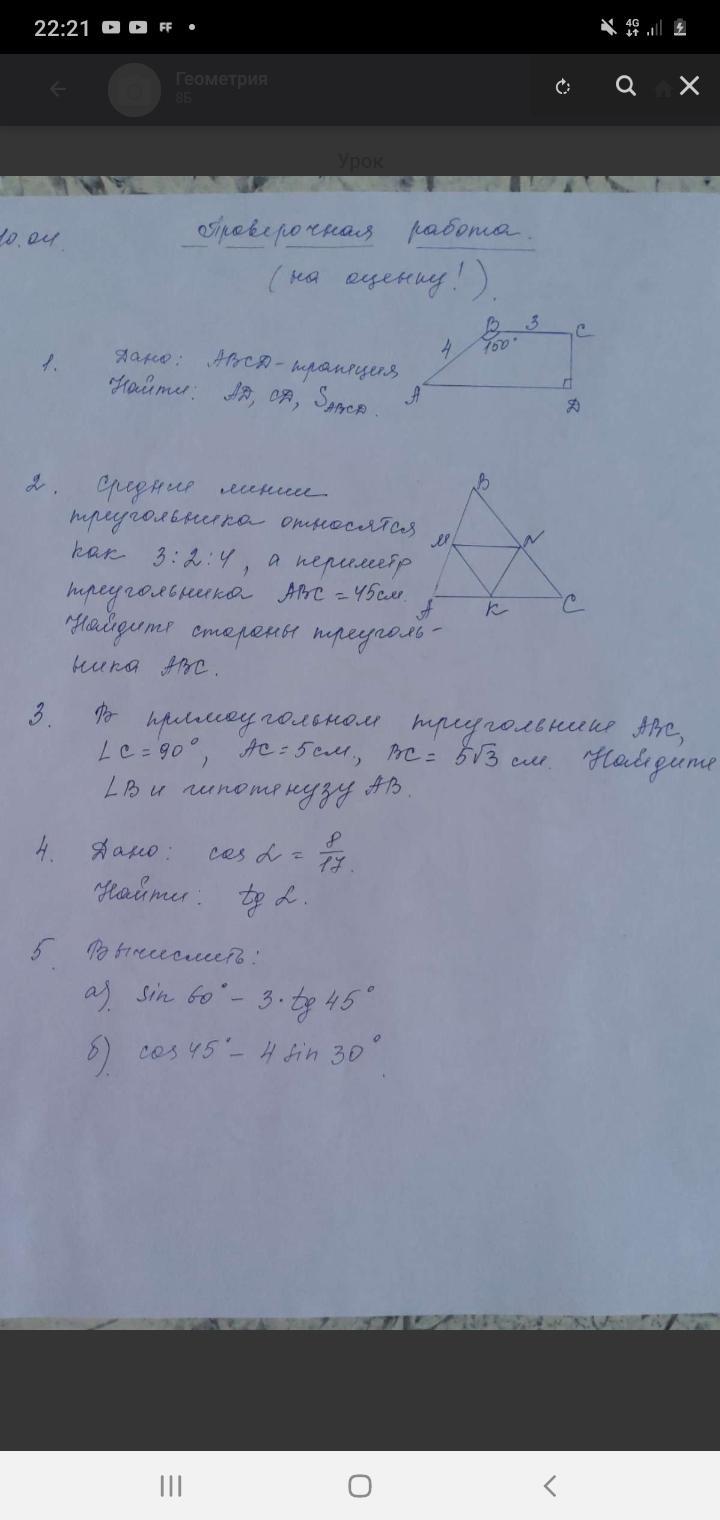 22:21 FF 4G
Геометрия
8Б
Урок
10.04.
Проверочная работа.
(на оценку!).
1. Дано: ABCD - трапеция
Найти: AD, CD, S_ABCD.
B 3 C
4 150°
A D
2. Средние линии
треугольника относятся
как 3:2:4, а периметр
треугольника ABC = 45см.
Найдите стороны треуголь-
ника ABC.
B
M N
A K C
3. В прямоугольном треугольнике ABC,
∠C = 90°, AC = 5см, BC = 5√3 см. Найдите
∠B и гипотенузу AB.
4. Дано: cos α = 8/17.
Найти: tg α.
5. Вычислить:
а) sin 60° - 3·tg 45°
б) cos 45° - 4 sin 30°.